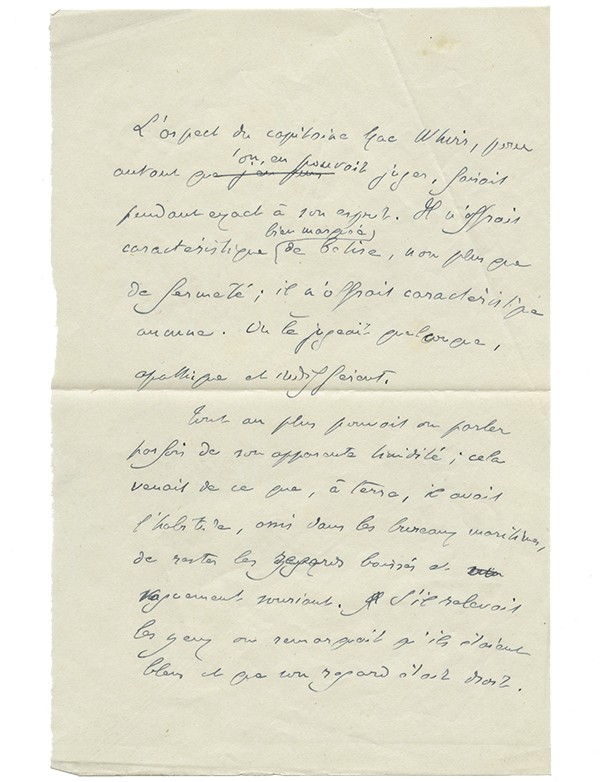 L'aspect du capitaine Mac Whirr, pour
autant qu'on en pouvait juger, faisait
pendant exact à son esprit. Il n'offrait
caractéristique bien marquée, de bêtise, non plus que
de fermeté ; il n'offrait caractéristique
aucune. On le jugeait quelconque,
apathique et indifférent.
Tout au plus pouvait on parler
parfois de son apparente timidité ; cela
venait de ce que, à terre, il avait
l'habitude, assis dans les bureaux maritimes,
de rester les regards baissés et
vaguement souriant. S'il relevait
les yeux on remarquait qu'ils étaient
bleus et que son regard était droit.